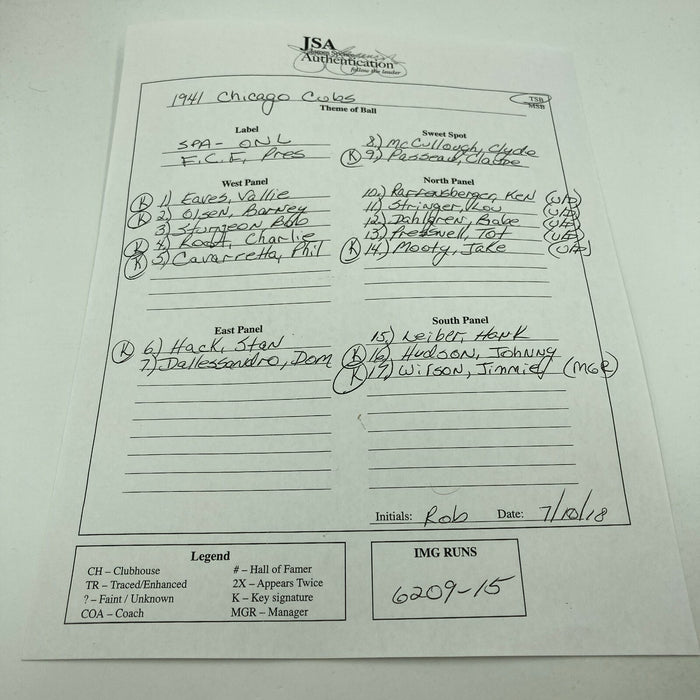 JSA
Authentication
follow the leader
1941 Chicago Cubs
Theme of Ball
TSB
MSB
Label
SPA - ONL
F.C.F. Pres
Sweet Spot
8.) McCullough, Clyde
K 9.) Passeau, Claude
West Panel
K 1.) Eaves, Vallie
K 2.) Olsen, Barney
3.) Sturgeon, Bob
K 4.) Root, Charlie
K 5.) Cavarretta, Phil
North Panel
10.) Raffensberger, Ken (U/D)
11.) Stringer, Lou (U/D)
12.) Dahlgren, Babe (U/D)
13.) Pressnell, Tot (U/D)
K 14.) Mooty, Jake (U/D)
East Panel
K 6.) Hack, Stan
7.) Dallessandro, Dom
South Panel
15.) Leiber, Hank
K 16.) Hudson, Johnny
K 17.) Wilson, Jimmie (MGR)
Initials: Rob Date: 7/10/18
Legend
CH – Clubhouse # – Hall of Famer
TR – Traced/Enhanced 2X – Appears Twice
? – Faint / Unknown K – Key signature
COA – Coach MGR – Manager
IMG RUNS
6209-15